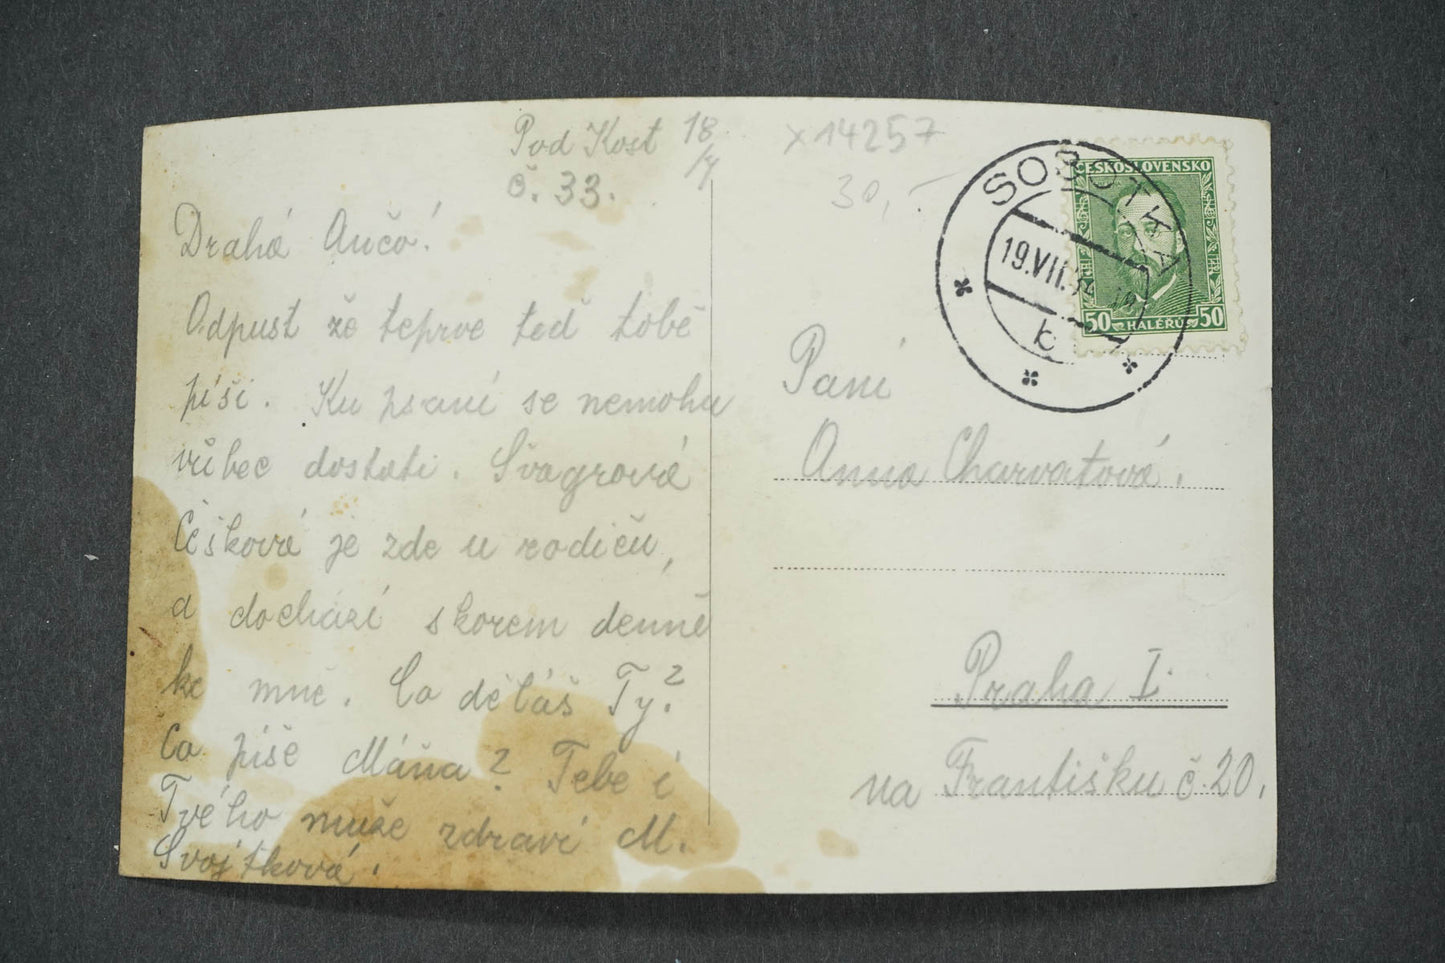 Pod Kost 18/7
č. 33.
Drahá Ančo!
Odpust že teprve teď tobě
píši. Ku psaní se nemohu
vůbec dostati. Švagrová
Češková je zde u rodičů,
a dochází skorem denně
ke mně. Co děláš Ty?
Co píše Máňa? Tebe i
Tvého muže zdraví M.
Svojtková.
x14257
30,-
SOBOTKA
19.VII.
b
ČESKOSLOVENSKO
50 HALÉŘŮ 50
Paní
Anna Charvatová.
Praha I.
na Františku č. 20.